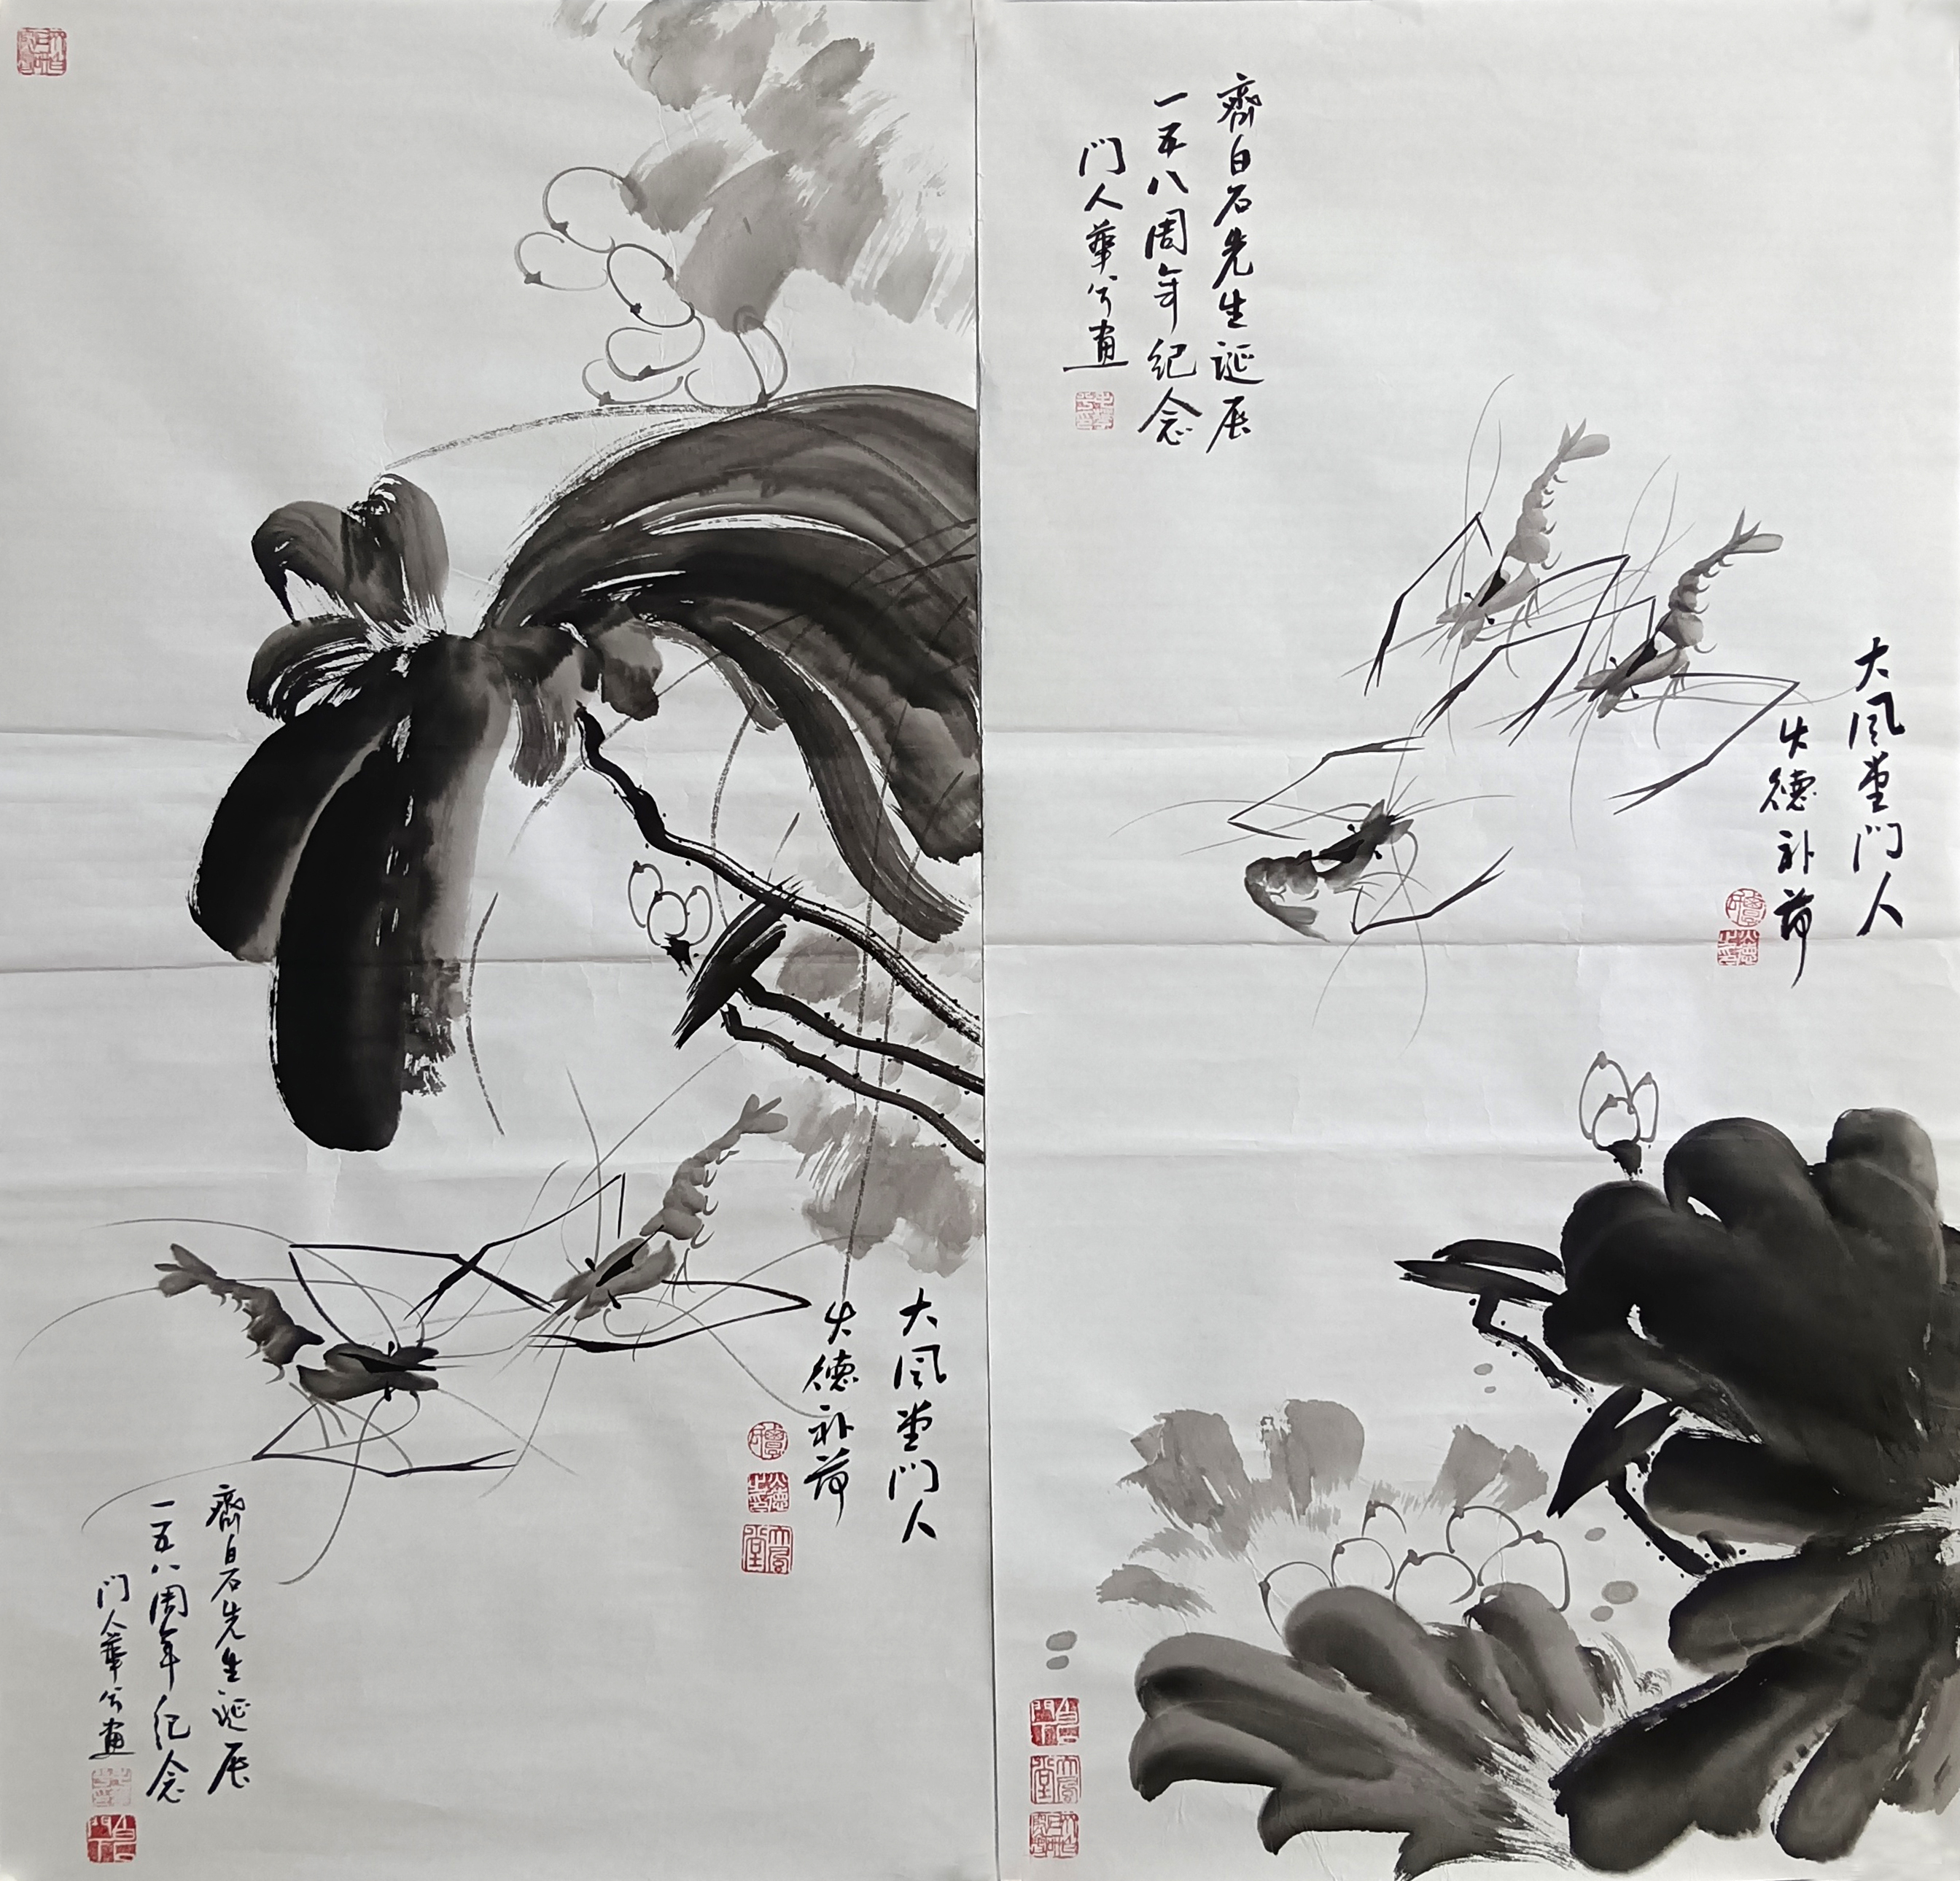 齊白石先生誕辰
一五八周年纪念
门人華兮画
大风堂门人
大德补荷
大风堂门人
大德补荷
齊白石先生诞辰
一五八周年纪念
门人華兮画
大風堂
大風堂